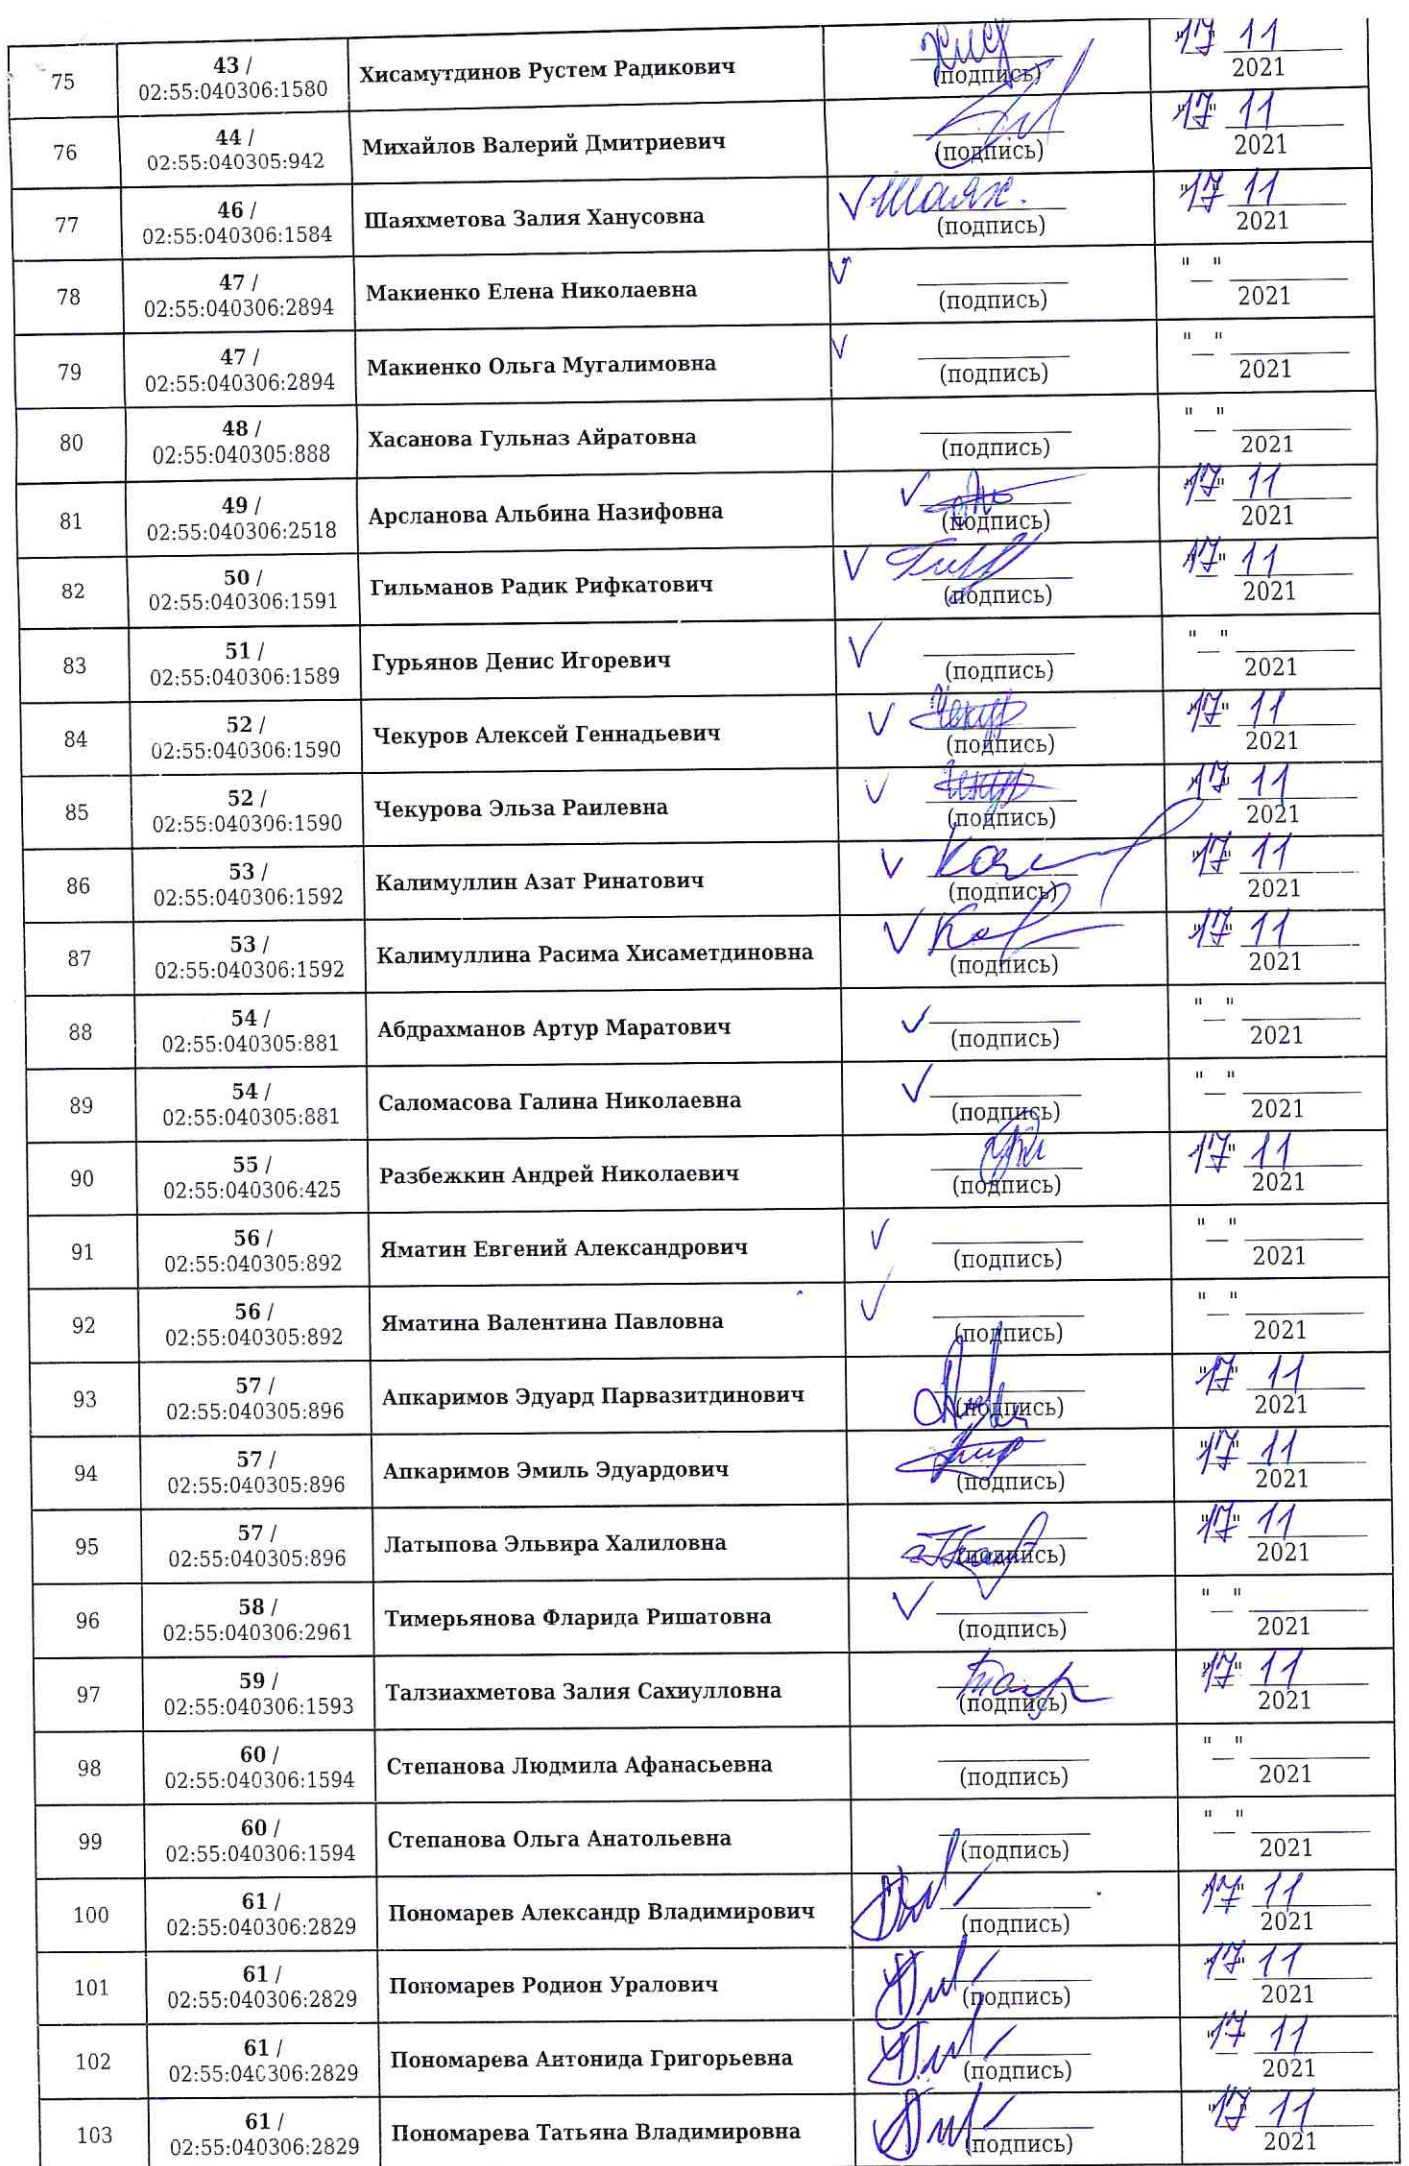 75
43 /
02:55:040306:1580
Хисамутдинов Рустем Радикович
(подпись)
"17" 11
2021
76
44 /
02:55:040305:942
Михайлов Валерий Дмитриевич
(подпись)
"17" 11
2021
77
46 /
02:55:040306:1584
Шаяхметова Залия Ханусовна
Шаях.
(подпись)
"17" 11
2021
78
47 /
02:55:040306:2894
Макиенко Елена Николаевна
(подпись)
"__" ________
2021
79
47 /
02:55:040306:2894
Макиенко Ольга Мугалимовна
(подпись)
"__" ________
2021
80
48 /
02:55:040305:888
Хасанова Гульназ Айратовна
(подпись)
"__" ________
2021
81
49 /
02:55:040306:2518
Арсланова Альбина Назифовна
(подпись)
"17" 11
2021
82
50 /
02:55:040306:1591
Гильманов Радик Рифкатович
(подпись)
"17" 11
2021
83
51 /
02:55:040306:1589
Гурьянов Денис Игоревич
(подпись)
"__" ________
2021
84
52 /
02:55:040306:1590
Чекуров Алексей Геннадьевич
(подпись)
"17" 11
2021
85
52 /
02:55:040306:1590
Чекурова Эльза Раилевна
(подпись)
"17" 11
2021
86
53 /
02:55:040306:1592
Калимуллин Азат Ринатович
(подпись)
"17" 11
2021
87
53 /
02:55:040306:1592
Калимуллина Расима Хисаметдиновна
(подпись)
"17" 11
2021
88
54 /
02:55:040305:881
Абдрахманов Артур Маратович
(подпись)
"__" ________
2021
89
54 /
02:55:040305:881
Саломасова Галина Николаевна
(подпись)
"__" ________
2021
90
55 /
02:55:040306:425
Разбежкин Андрей Николаевич
(подпись)
"17" 11
2021
91
56 /
02:55:040305:892
Яматин Евгений Александрович
(подпись)
"__" ________
2021
92
56 /
02:55:040305:892
Яматина Валентина Павловна
(подпись)
"__" ________
2021
93
57 /
02:55:040305:896
Апкаримов Эдуард Парвазитдинович
(подпись)
"17" 11
2021
94
57 /
02:55:040305:896
Апкаримов Эмиль Эдуардович
(подпись)
"17" 11
2021
95
57 /
02:55:040305:896
Латыпова Эльвира Халиловна
(подпись)
"17" 11
2021
96
58 /
02:55:040306:2961
Тимерьянова Фларида Ришатовна
(подпись)
"__" ________
2021
97
59 /
02:55:040306:1593
Талзиахметова Залия Сахиулловна
(подпись)
"17" 11
2021
98
60 /
02:55:040306:1594
Степанова Людмила Афанасьевна
(подпись)
"__" ________
2021
99
60 /
02:55:040306:1594
Степанова Ольга Анатольевна
(подпись)
"__" ________
2021
100
61 /
02:55:040306:2829
Пономарев Александр Владимирович
(подпись)
"17" 11
2021
101
61 /
02:55:040306:2829
Пономарев Родион Уралович
(подпись)
"17" 11
2021
102
61 /
02:55:040306:2829
Пономарева Антонида Григорьевна
(подпись)
"17" 11
2021
103
61 /
02:55:040306:2829
Пономарева Татьяна Владимировна
(подпись)
"17" 11
2021